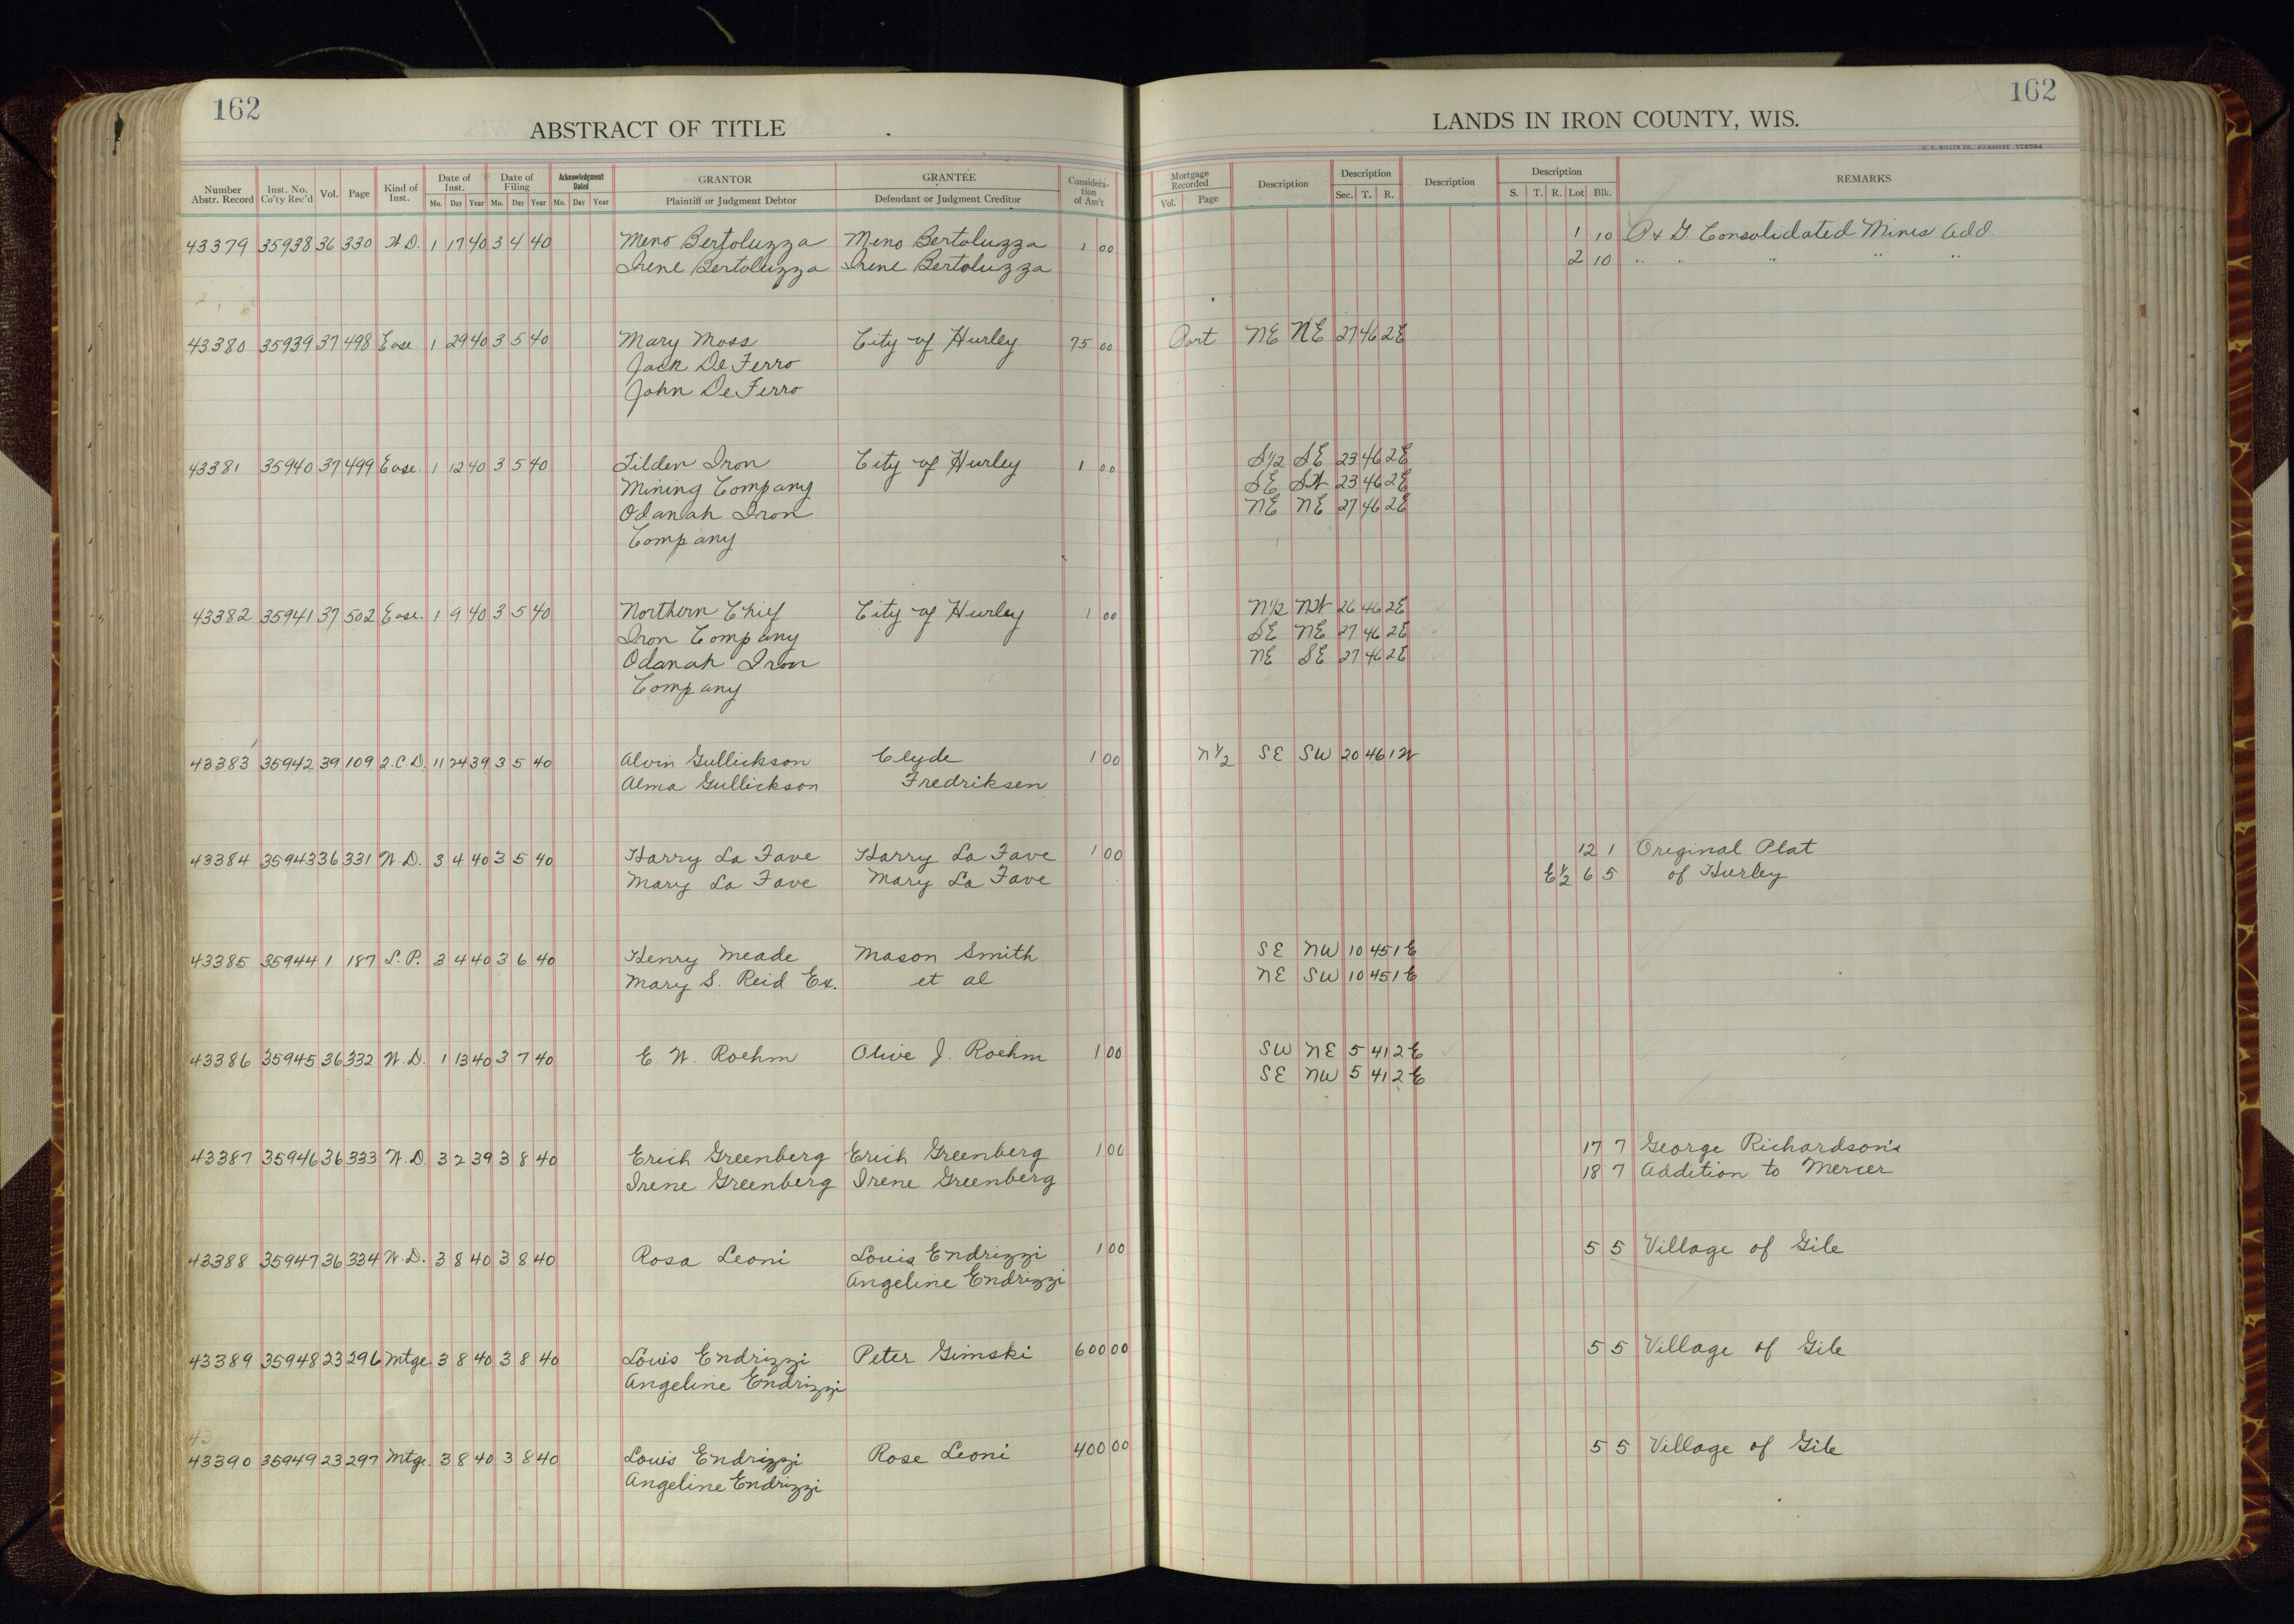 162
ABSTRACT OF TITLE
Number Abstr. Record | Inst. No. Co'ty Rec'd | Vol. | Page | Kind of Inst. | Date of Inst. Mo. Day Year | Date of Filing Mo. Day Year | Acknowledgment Dated Mo. Day Year | GRANTOR Plaintiff or Judgment Debtor | GRANTEE Defendant or Judgment Creditor | Consideration of Am't
43379 35938 36 330 W.D. 1 17 40 3 4 40 Meno Bertoluzza Meno Bertoluzza 1 00
Irene Bertoluzza Irene Bertoluzza
43380 35939 37 498 Ease 1 29 40 3 5 40 Mary Moss City of Hurley 75 00
Jack De Ferro
John De Ferro
43381 35940 37 499 Ease. 1 12 40 3 5 40 Tilden Iron City of Hurley 1 00
Mining Company
Odanah Iron
Company
43382 35941 37 502 Ease. 1 9 40 3 5 40 Northern Chief City of Hurley 1 00
Iron Company
Odanah Iron
Company
43383 35942 39 109 2.C.D. 11 24 39 3 5 40 Alvin Gullickson Clyde 1 00
Alma Gullickson Fredriksen
43384 35943 36 331 W.D. 3 4 40 3 5 40 Harry La Fave Harry La Fave 1 00
Mary La Fave Mary La Fave
43385 35944 1 187 L.P. 3 4 40 3 6 40 Henry Meade Mason Smith
Mary S. Reid Ex. et al
43386 35945 36 332 W.D. 1 13 40 3 7 40 E. W. Roehm Olive J. Roehm 1 00
43387 35946 36 333 W.D. 3 2 39 3 8 40 Erich Greenberg Erich Greenberg 1 00
Irene Greenberg Irene Greenberg
43388 35947 36 334 W.D. 3 8 40 3 8 40 Rosa Leoni Louis Endrizzi 1 00
Angeline Endrizzi
43389 35948 23 296 Mtge 3 8 40 3 8 40 Louis Endrizzi Peter Gimski 600 00
Angeline Endrizzi
43
43390 35949 23 297 Mtge 3 8 40 3 8 40 Louis Endrizzi Rose Leoni 400 00
Angeline Endrizzi
162
LANDS IN IRON COUNTY, WIS.
Mortgage Recorded Vol. Page | Description | Description Sec. T. R. | Description | Description S. T. R. Lot Blk. | REMARKS
1 10 P & G. Consolidated Mines Add.
2 10 " " " " "
Part NE NE 27 46 2E
S1/2 SE 23 46 2E
SE SW 23 46 2E
NE NE 27 46 2E
N1/2 NW 26 46 2E
SE NE 27 46 2E
NE SE 27 46 2E
N1/2 SE SW 20 46 1W
12 1 Original Plat
E1/2 6 5 of Hurley
SE NW 10 45 1E
NE SW 10 45 1E
SW NE 5 41 2E
SE NW 5 41 2E
17 7 George Richardson's
18 7 Addition to Mercer
5 5 Village of Gile
5 5 Village of Gile
5 5 Village of Gile